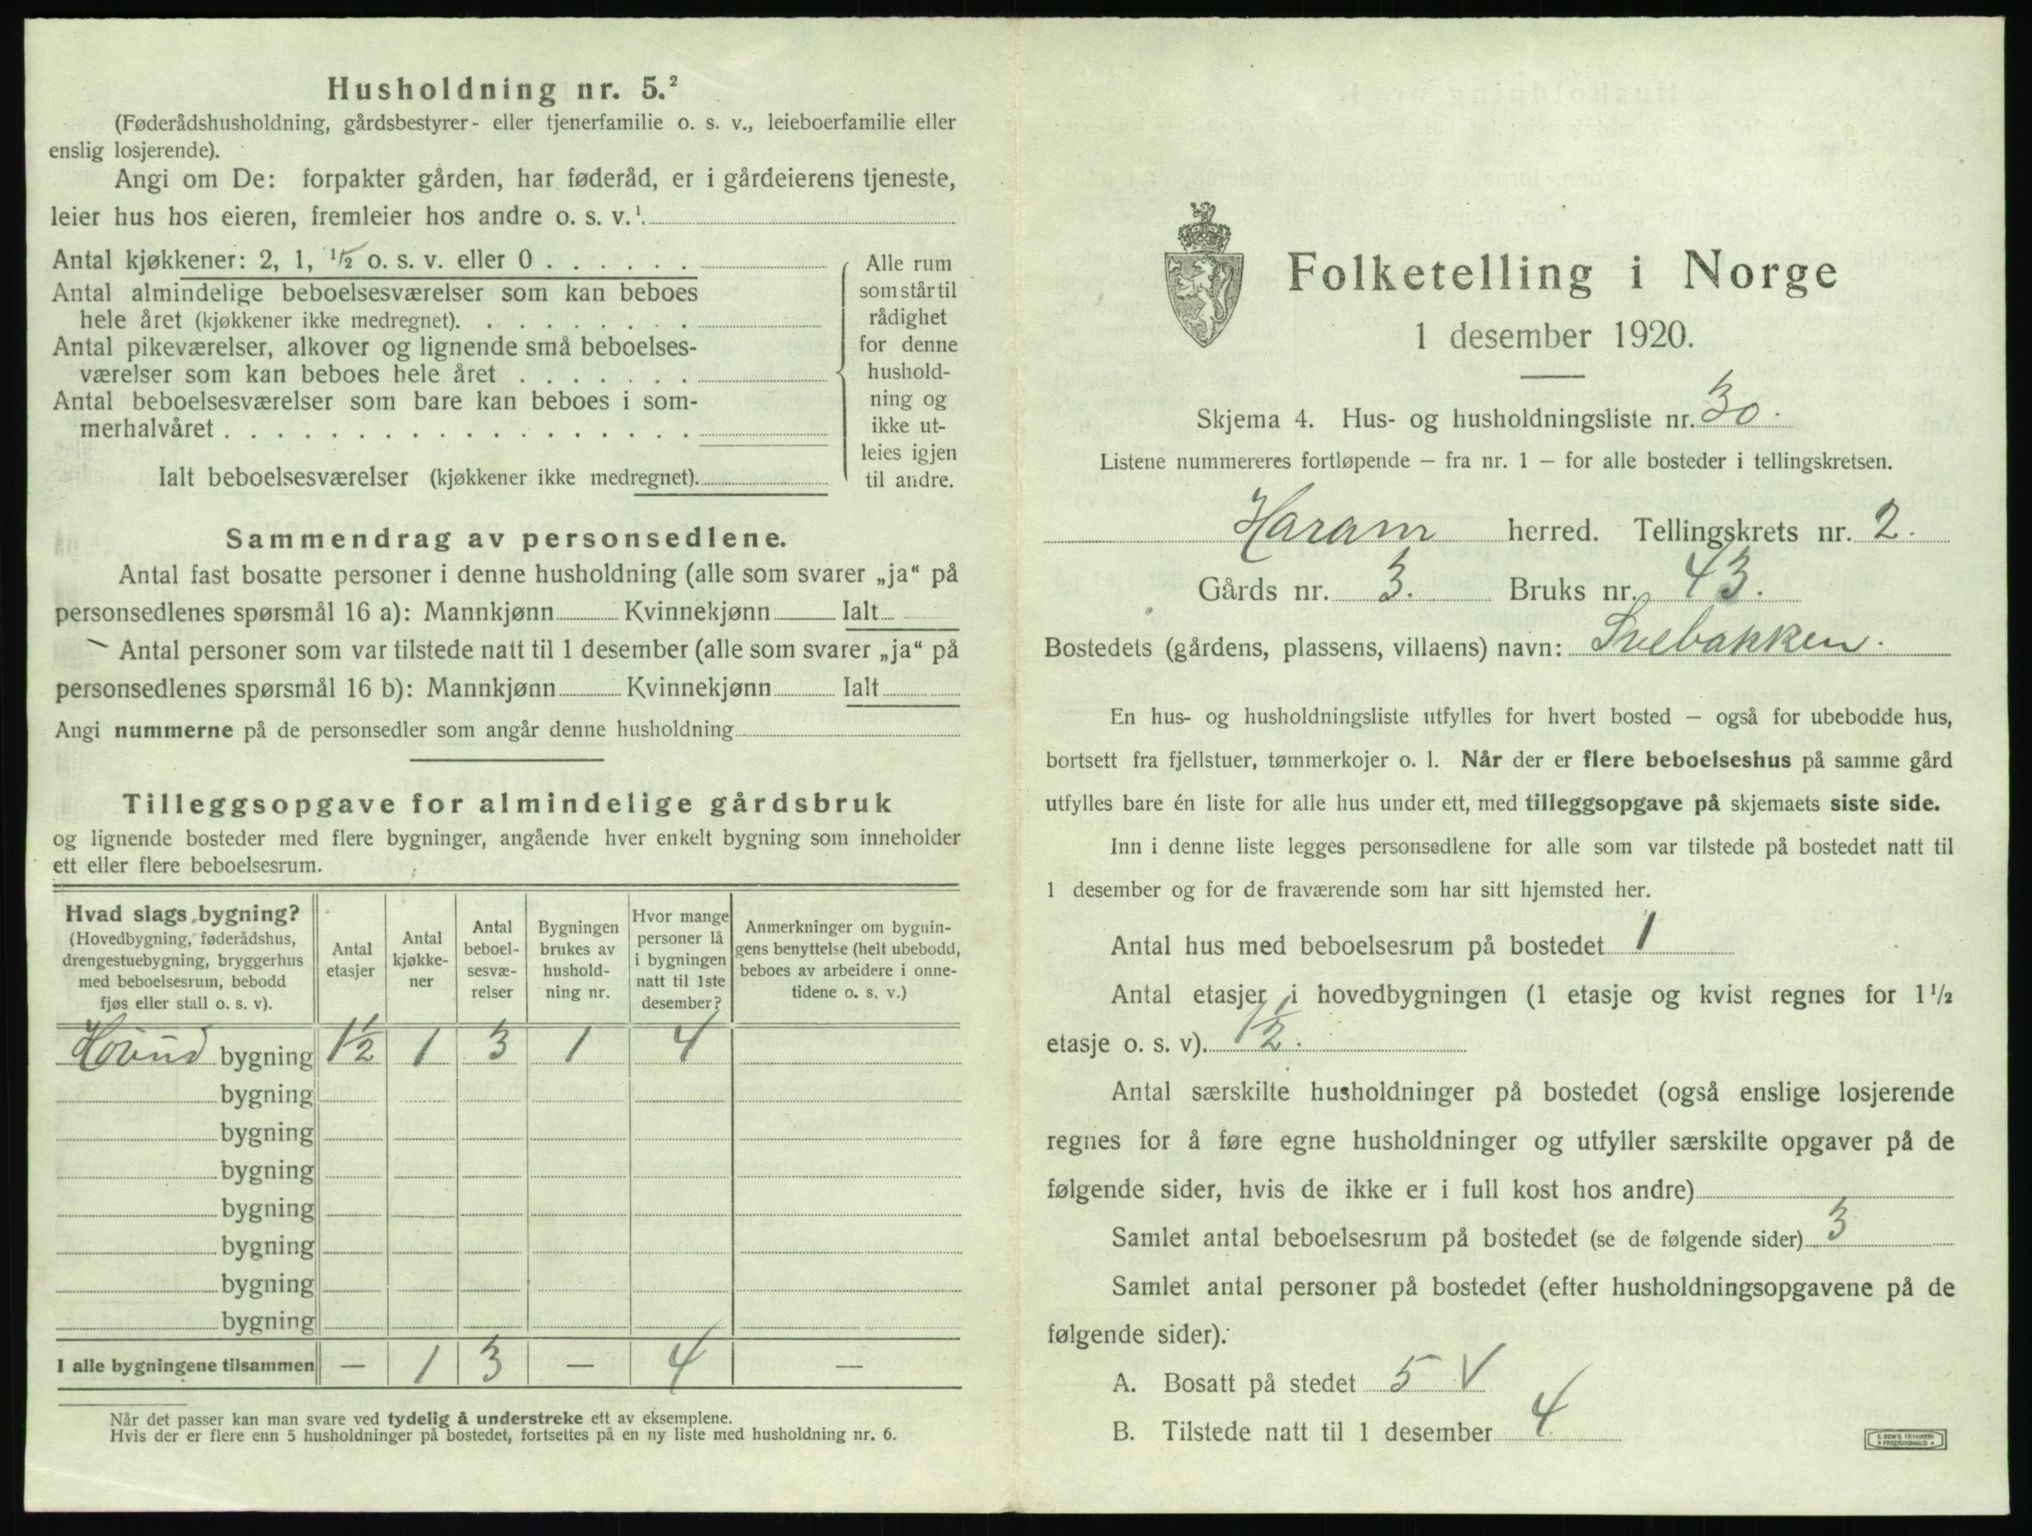 Husholdning nr. 5.²
(Føderådshusholdning, gårdsbestyrer- eller tjenerfamilie o. s. v., leieboerfamilie eller
enslig losjerende).
Angi om De: forpakter gården, har føderåd, er i gårdeierens tjeneste,
leier hus hos eieren, fremleier hos andre o. s. v.¹.
Antal kjøkkener: 2, 1, ½ o. s. v. eller 0 . . . . . .
Antal almindelige beboelsesværelser som kan beboes
hele året (kjøkkener ikke medregnet). . . . . . . . .
Antal pikeværelser, alkover og lignende små beboelses-
værelser som kan beboes hele året . . . . . . .
Antal beboelsesværelser som bare kan beboes i som-
merhalvåret . . . . . . . . . . . . . . . . . .
Ialt beboelsesværelser (kjøkkener ikke medregnet).
Alle rum
som står til
rådighet
for denne
hushold-
ning og
ikke ut-
leies igjen
til andre.
Sammendrag av personsedlene.
Antal fast bosatte personer i denne husholdning (alle som svarer „ja“ på
personsedlenes spørsmål 16 a): Mannkjønn Kvinnekjønn Ialt
Antal personer som var tilstede natt til 1 desember (alle som svarer „ja“ på
personsedlenes spørsmål 16 b): Mannkjønn Kvinnekjønn Ialt
Angi nummerne på de personsedler som angår denne husholdning
Tilleggsopgave for almindelige gårdsbruk
og lignende bosteder med flere bygninger, angående hver enkelt bygning som inneholder
ett eller flere beboelsesrum.
Hvad slags bygning?
(Hovedbygning, føderådshus,
drengestuebygning, bryggerhus
med beboelsesrum, bebodd
fjøs eller stall o. s. v).
Antal
etasjer
Antal
kjøkke-
ner
Antal
beboel-
sesvæ-
relser
Bygningen
brukes av
hushold-
ning nr.
Hvor mange
personer lå
i bygningen
natt til 1ste
desember?
Anmerkninger om bygnin-
gens benyttelse (helt ubebodd,
beboes av arbeidere i onne-
tidene o. s. v.)
bygning 1½ 1 3 1 4
bygning
bygning
bygning
bygning
bygning
bygning
bygning
I alle bygningene tilsammen — 1 3 — 4 —
Når det passer kan man svare ved tydelig å understreke ett av eksemplene.
Hvis der er flere enn 5 husholdninger på bostedet, fortsettes på en ny liste med husholdning nr. 6.
Folketelling i Norge
1 desember 1920.
Skjema 4. Hus- og husholdningsliste nr. 30.
Listene nummereres fortløpende – fra nr. 1 – for alle bosteder i tellingskretsen.
Haram herred. Tellingskrets nr. 2.
Gårds nr. 3. Bruks nr. 43.
Bostedets (gårdens, plassens, villaens) navn: Svebakken.
En hus- og husholdningsliste utfylles for hvert bosted – også for ubebodde hus,
bortsett fra fjellstuer, tømmerkojer o. l. Når der er flere beboelseshus på samme gård
utfylles bare én liste for alle hus under ett, med tilleggsopgave på skjemaets siste side.
Inn i denne liste legges personsedlene for alle som var tilstede på bostedet natt til
1 desember og for de fraværende som har sitt hjemsted her.
Antal hus med beboelsesrum på bostedet 1
Antal etasjer i hovedbygningen (1 etasje og kvist regnes for 1½
etasje o. s. v). 1½.
Antal særskilte husholdninger på bostedet (også enslige losjerende
regnes for å føre egne husholdninger og utfyller særskilte opgaver på de
følgende sider, hvis de ikke er i full kost hos andre)
Samlet antal beboelsesrum på bostedet (se de følgende sider) 3
Samlet antal personer på bostedet (efter husholdningsopgavene på de
følgende sider).
A. Bosatt på stedet 5 V
B. Tilstede natt til 1 desember 4